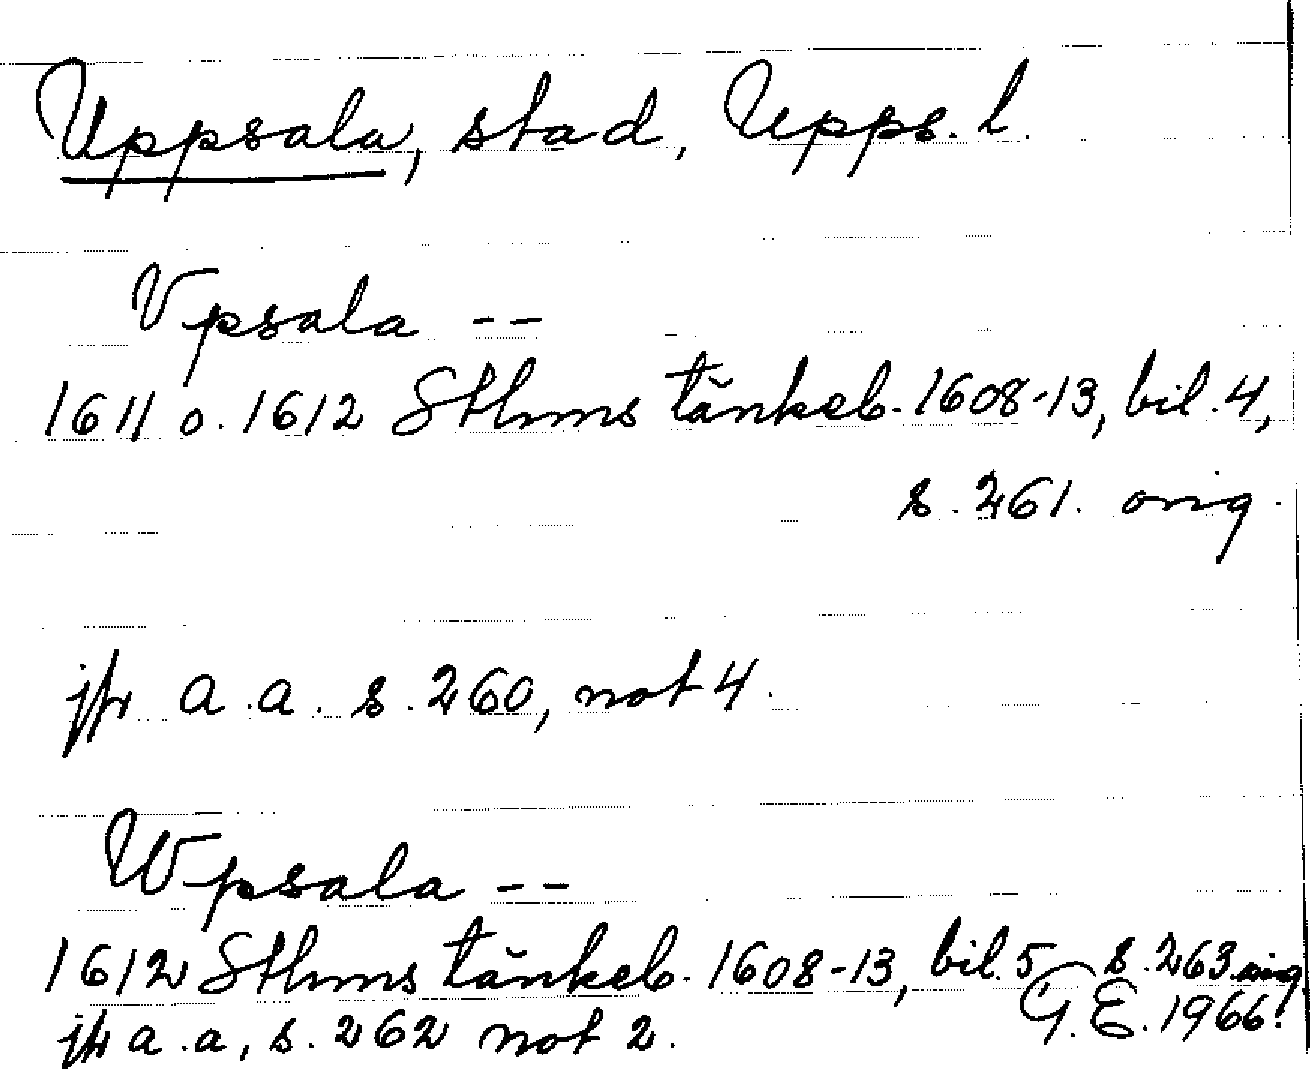 Uppsala, stad, Upps. l.
Vpsala --
1611 o. 1612 Sthms tänkeb. 1608-13, bil. 4,
s. 261. orig.
jfr a.a. s. 260, not 4.
Wpsala --
1612 Sthms tänkeb. 1608-13, bil. 5 s. 263 orig.
jfr a.a, s. 262 not 2.
G.E. 1966.